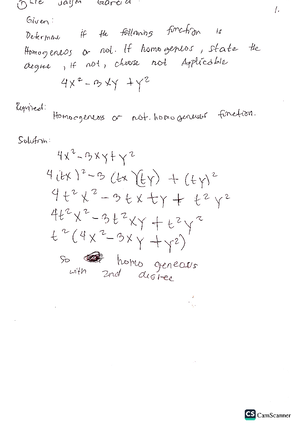 1.
Given:
Determine if the following function is
Homogeneos or not. If homogeneos, state the
degree, if not, choose not Applicable
4x² - 3xy + y²
Required:
Homorgeneos or not homogeneous function.
Solution:
4x² - 3xy + y²
4(tx)² - 3(tx)(ty) + (ty)²
4t²x² - 3txty + t²y²
4t²x² - 3t²xy + t²y²
t²(4x² - 3xy + y²)
So homo geneous
with 2nd degree
CS CamScanner